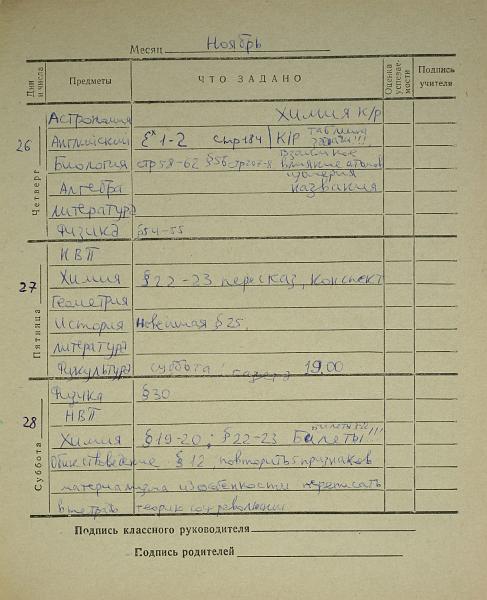 Месяц Ноябрь
Дни и числа Предметы ЧТО ЗАДАНО Оценка успеваемости Подпись учителя
Астрономия Химия К/р
26 Четверг Английский Ех 1-2 стр 184 К/Р таблица
Биология стр 58-62 § 56 стр 207-8 взаимное влияние атомов
Алгебра изомерия названия
Литература
Физика § 54-55
27 Пятница НВП
Химия § 22-23 пересказ, конспект
Геометрия
История Новейшая § 25.
Литература
Физкультура суббота 19.00
28 Суббота Физика § 30
НВП
Химия § 19-20; § 22-23 Билеты!!!
Обществоведение § 12 повторить 5 признаков
материализма и особенности переписать
в тетрадь теорию соц революции
Подпись классного руководителя
Подпись родителей